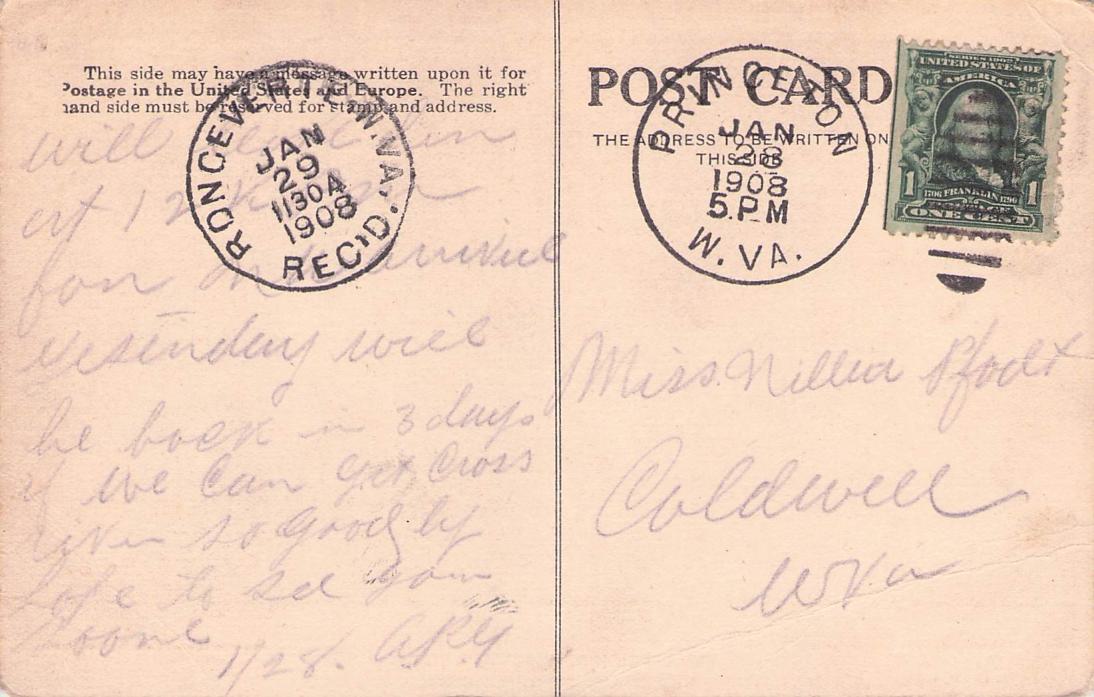 This side may have a message written upon it for
Postage in the United States and Europe. The right
hand side must be reserved for stamp and address.
RONCEVERTE, W. VA.
JAN
29
1130A
1908
REC'D.
will
at 12
for
yesterday will
be back in 3 days
if we can get cross
river so good by
hope to see you
soone
1/28.
POST CARD
THE ADDRESS TO BE WRITTEN ON
THIS SIDE
PRINCETON
JAN
28
1908
5. PM
W. VA.
SERIES 1902
UNITED STATES OF
AMERICA
1 1
1706 FRANKLIN 1790
ONE CENT
Miss Nillia
Coldwell
W Va